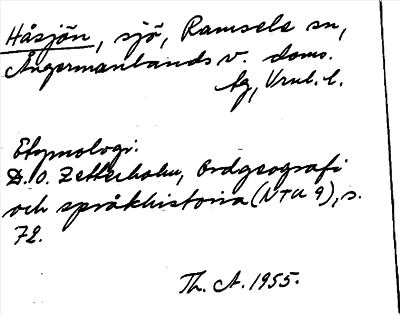 Håsjön, sjö, Ramsele sn,
Ångermanlands v. doms.
lg, Vrnl. l.
Etymologi:
D. O. Zetterholm, Ordgeografi
och språkhistoria (NTU 9), s.
72.
Th. A. 1955.